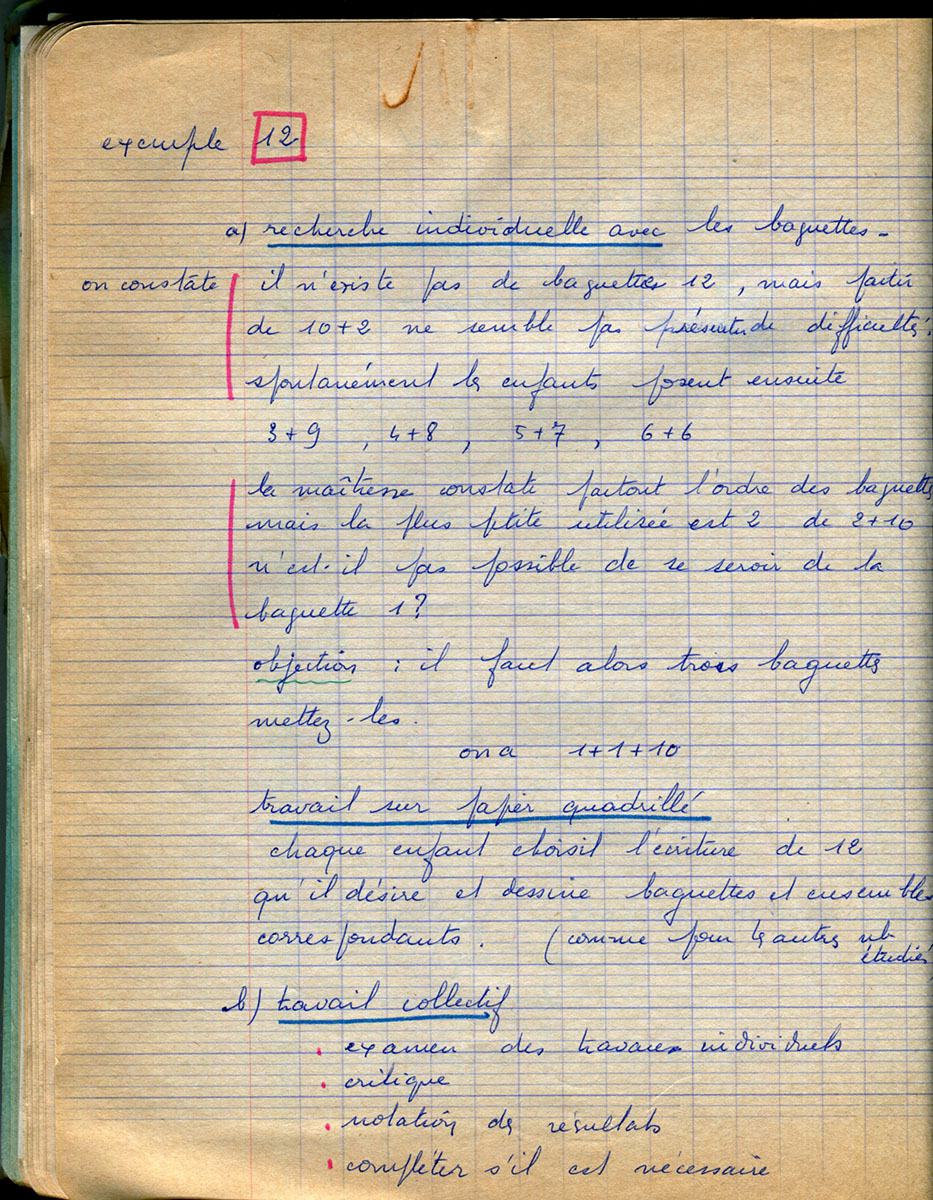 exemple 12
a) recherche individuelle avec les baguettes -
on constate il n'existe pas de baguette 12, mais partir
de 10+2 ne semble pas présenter de difficultés.
spontanément les enfants posent ensuite
3+9 , 4+8 , 5+7 , 6+6
la maîtresse constate partout l'ordre des baguettes
mais la plus ptite utilisée est 2 de 2+10
n'est-il pas possible de se servir de la
baguette 1 ?
objection : il faut alors trois baguettes
mettez-les.
on a 1+1+10
travail sur papier quadrillé
chaque enfant choisit l'écriture de 12
qu'il désire et dessine baguettes et ensembles
correspondants. (comme pour les autres nb
étudiés
b) travail collectif
. examen des travaux individuels
. critique
. notation des résultats
. compléter s'il est nécessaire